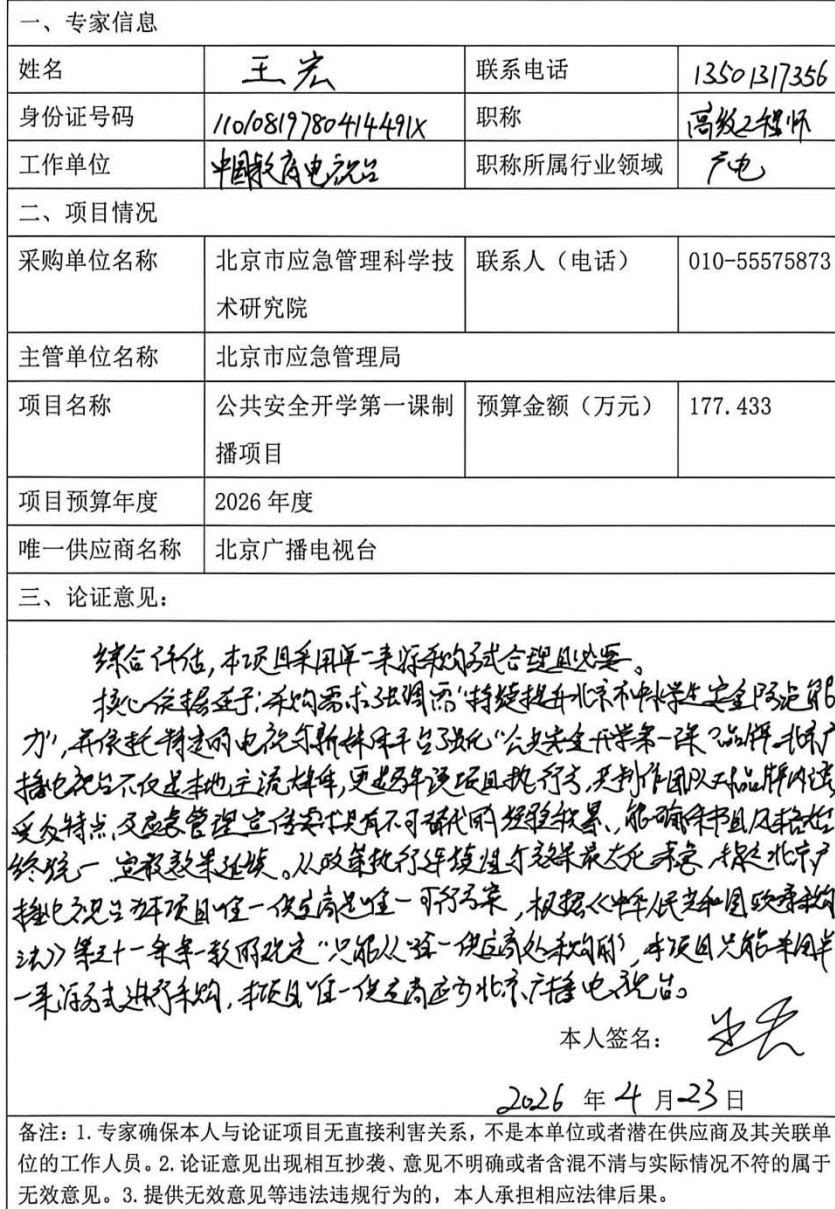 一、专家信息
姓名 王宏 联系电话 13501317356
身份证号码 11010819780414491X 职称 高级工程师
工作单位 中国教育电视台 职称所属行业领域 广电
二、项目情况
采购单位名称 北京市应急管理科学技术研究院 联系人（电话） 010-55575873
主管单位名称 北京市应急管理局
项目名称 公共安全开学第一课制播项目 预算金额（万元） 177.433
项目预算年度 2026 年度
唯一供应商名称 北京广播电视台
三、论证意见：
综合评估，本项目采用单一来源采购方式合理且必要。
核心依据在于：采购需求强调需“持续提升北京市中小学生安全防范能
力”，并依托特定的电视与新媒体平台强化“公共安全开学第一课”品牌。北京广
播电视台不仅是本地主流媒体，更是历年该项目执行方，其制作团队对品牌内涵、
受众特点及应急管理宣传要求具有不可替代的经验积累，能确保节目风格始
终统一、宣教效果延续。从政策执行连续性与效果最大化考虑，指定北京广
播电视台为本项目唯一供应商是唯一可行方案，根据《中华人民共和国政府采购
法》第三十一条第一款的规定“只能从唯一供应商处采购的”，本项目只能采用单
一来源方式进行采购，本项目唯一供应商应为北京广播电视台。
本人签名： 王宏
2026 年 4 月 23 日
备注：1.专家确保本人与论证项目无直接利害关系，不是本单位或者潜在供应商及其关联单
位的工作人员。2.论证意见出现相互抄袭、意见不明确或者含混不清与实际情况不符的属于
无效意见。3.提供无效意见等违法违规行为的，本人承担相应法律后果。